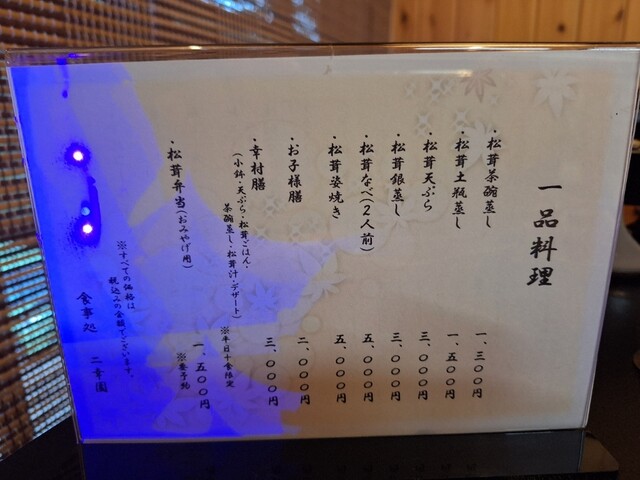 一品料理
・松茸茶碗蒸し 一、三〇〇円
・松茸土瓶蒸し 一、五〇〇円
・松茸天ぷら 三、〇〇〇円
・松茸銀蒸し 三、〇〇〇円
・松茸なべ(2人前) 五、〇〇〇円
・松茸姿焼き 五、〇〇〇円
・お子様膳 二、〇〇〇円
・幸村膳 三、〇〇〇円
(小鉢・天ぷら・松茸ごはん・
茶碗蒸し・松茸汁・デザート) ※平日十食限定
・松茸弁当(おみやげ用) 一、五〇〇円
※要予約
※すべての価格は
税込みの金額でございます。
食事処 二幸園